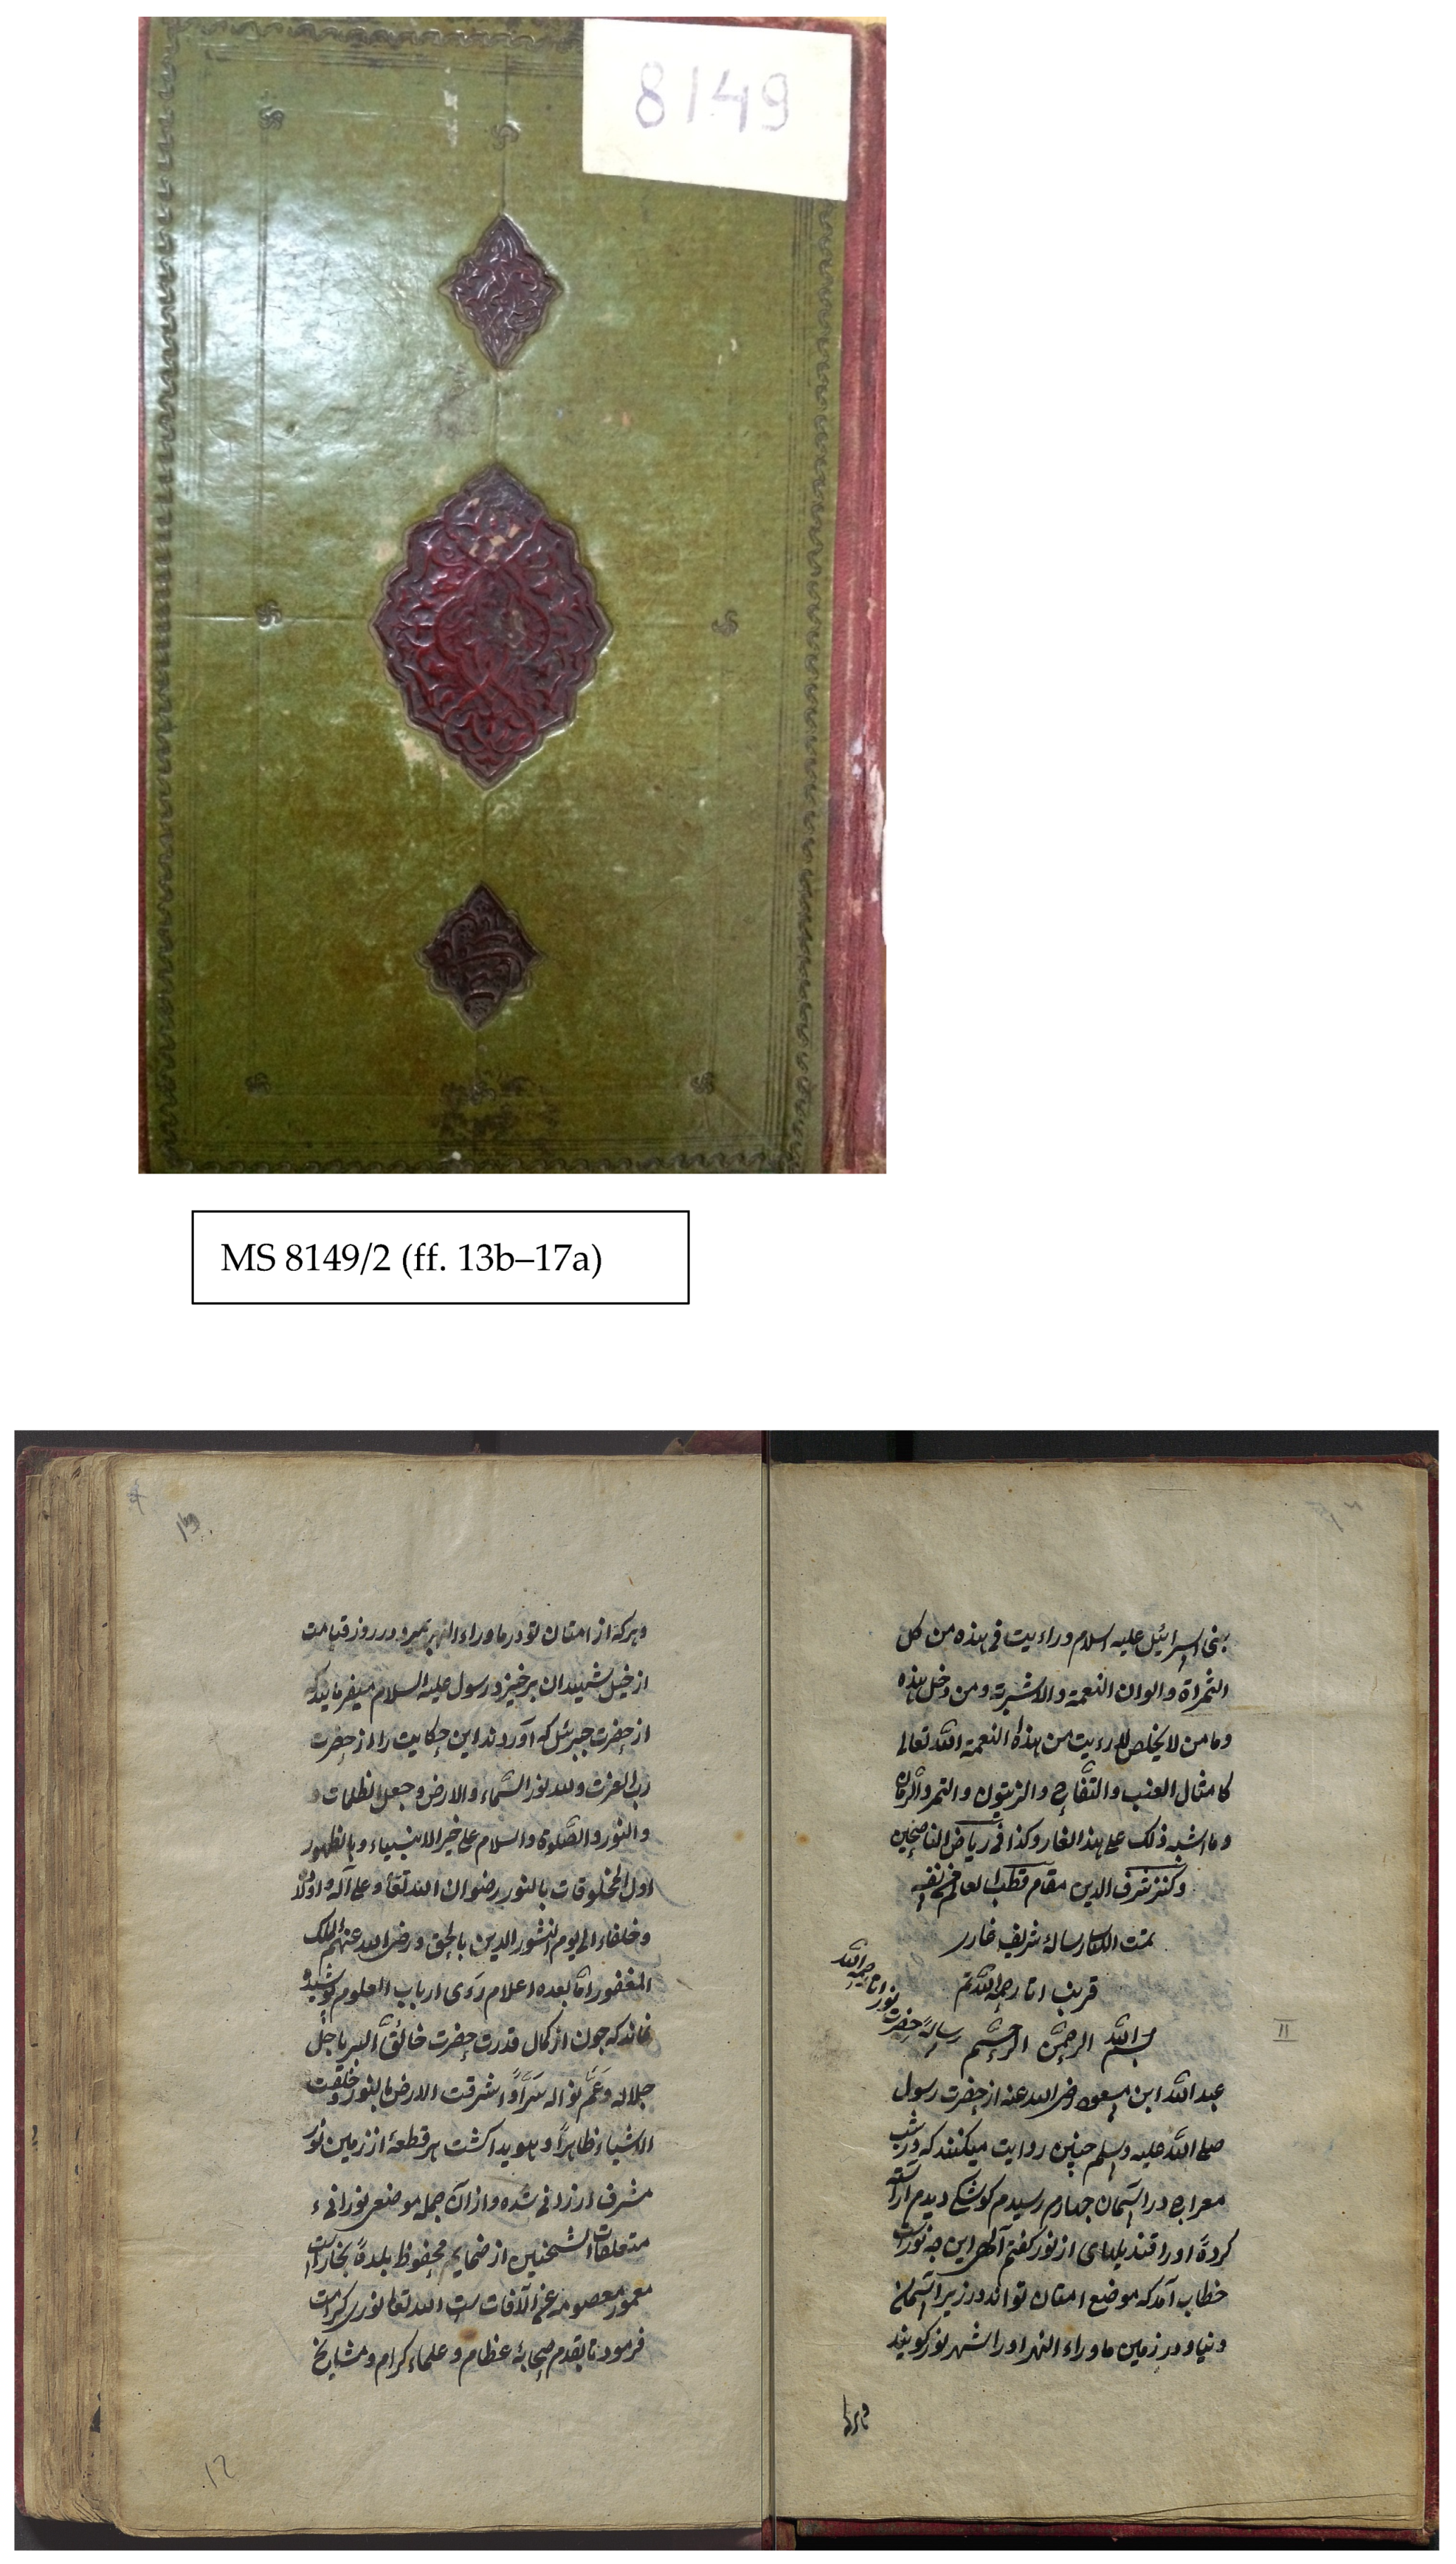 8149
MS 8149/2 (ff. 13b–17a)
بنی اسرائیل علیه السلام وراءیت فی هذه من کل
الثمراة والوان النعمة والاشربة ومن دخل هذه
وما من لا یخلص للرءیت من هذه النعمة الله تعالی
کامثال العنب والتفاح والزیتون والتمر والرمان
وما اشبه ذلک علی هذا الغار وکذا فی ریاض الناصحین
وکنز شرف الدین مقام قطب العالم
تمت الکتاب رسالهٔ شریف غار
رسالهٔ حضرت نور اتا رحمة الله
قریب اتا رحمة الله تم
بسم الله الرحمن الرحیم
II
عبد الله ابن مسعود رضی الله عنه از حضرت رسول
صلی الله علیه وسلم چنین روایت میکنند که در شب
معراج در آسمان چهارم رسیدم کوشکی دیدم آراسته
کردهٔ او را قندیلهای از نور کفتم الهی این چه نوراست
خطاب آمد که موضع امتان تو اند در زیر آسمان
دنیا و در زمین ماوراء النهر او را شهر نور کویند
وهرکه
13
وهرکه از امتان تو در ماوراء النهر بمیرد در روز قیامت
از خیل شهیدان برخیزد رسول علیه السلام میفرمایدکه
از حضرت جبرئیل که آوردند این حکایت را از حضرت
رب العزت ولله نور السماء والارض وجعل الظلمات و
والنور والصلوة والسلام علی خیر الانبیاء وبالظهور
اول المخلوقات بالنور رضوان الله تعالی وعلی آله واولاد
وخلفاء الی یوم النشور الدین بالحق ورضی الله عنهم الملک
الغفور اما بعده اعلام رءی ارباب العلوم پوشیده
نماند که چون از کمال قدرت حضرت خالق البریا جل
جلاله وعم نواله سرًا واشرقت الارض بالنور وخلقت
الاشیاء ظاهرًا وهویدا کشت هر قطعهٔ از زمین نور
مشرف ارزانی شده و از آن جمله موضع نورانیء
متعلقات الشخنین از ضمایم محفوظ بلدهٔ بخارا است
معمور معصومه عن الآفات است الله تعالی نوری کرامت
فرمود تا بقدم صحابهٔ عظام و علماء کرام و مشایخ
12